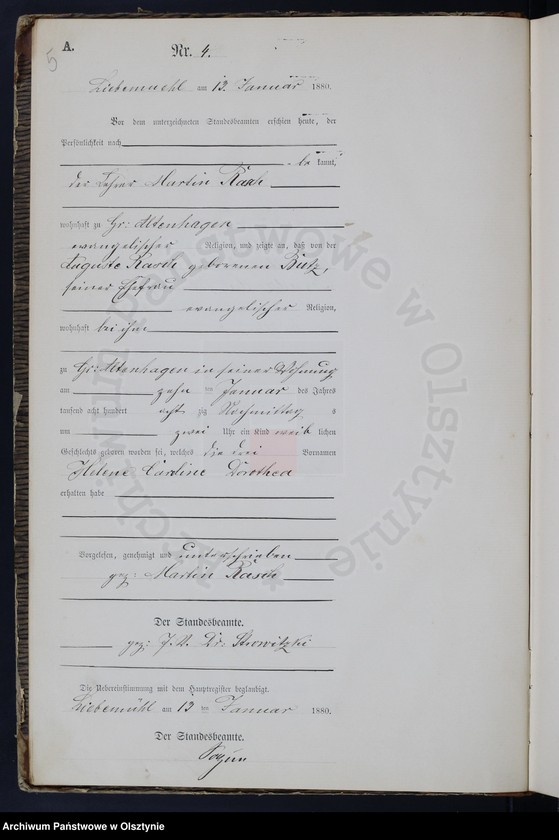 5
A.
Nr. 4.
Liebemuehl am 13. Januar 1880.
Vor dem unterzeichneten Standesbeamten erschien heute, der
Persönlichkeit nach
be kannt,
der Lehrer Martin Rasch
wohnhaft zu Gr: Altenhagen
evangelischer Religion, und zeigte an, daß von der
Auguste Rasch geborenen Butz,
seiner Ehefrau
evangelischer Religion,
wohnhaft bei ihm
zu Gr: Altenhagen in seiner Wohnung
am zehn ten Januar des Jahres
tausend acht hundert acht zig Nachmittag s
um zwei Uhr ein Kind weib lichen
Geschlechts geboren worden sei, welches die drei Vornamen
Helene Caroline Dorothea
erhalten habe
Vorgelesen, genehmigt und unterschrieben
gez: Martin Rasch
Der Standesbeamte.
gez:
Die Uebereinstimmung mit dem Hauptregister beglaubigt.
Liebemühl am 13 ten Januar 1880.
Der Standesbeamte.
Archiwum Państwowe w Olsztynie
Archiwum Państwowe w Olsztynie